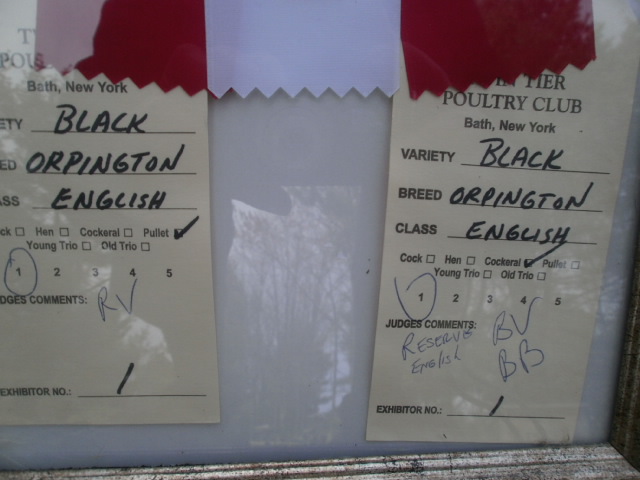 Bath, New York
BLACK
ORPINGTON
ENGLISH
Hen Cockeral Pullet
Young Trio Old Trio
1 2 3 4 5
COMMENTS: RV
EXHIBITOR NO.: 1
TIER
POULTRY CLUB
Bath, New York
VARIETY BLACK
BREED ORPINGTON
CLASS ENGLISH
Cock Hen Cockeral Pullet
Young Trio Old Trio
1 2 3 4 5
JUDGES COMMENTS: BV
RESERVE BB
ENGLISH
EXHIBITOR NO.: 1